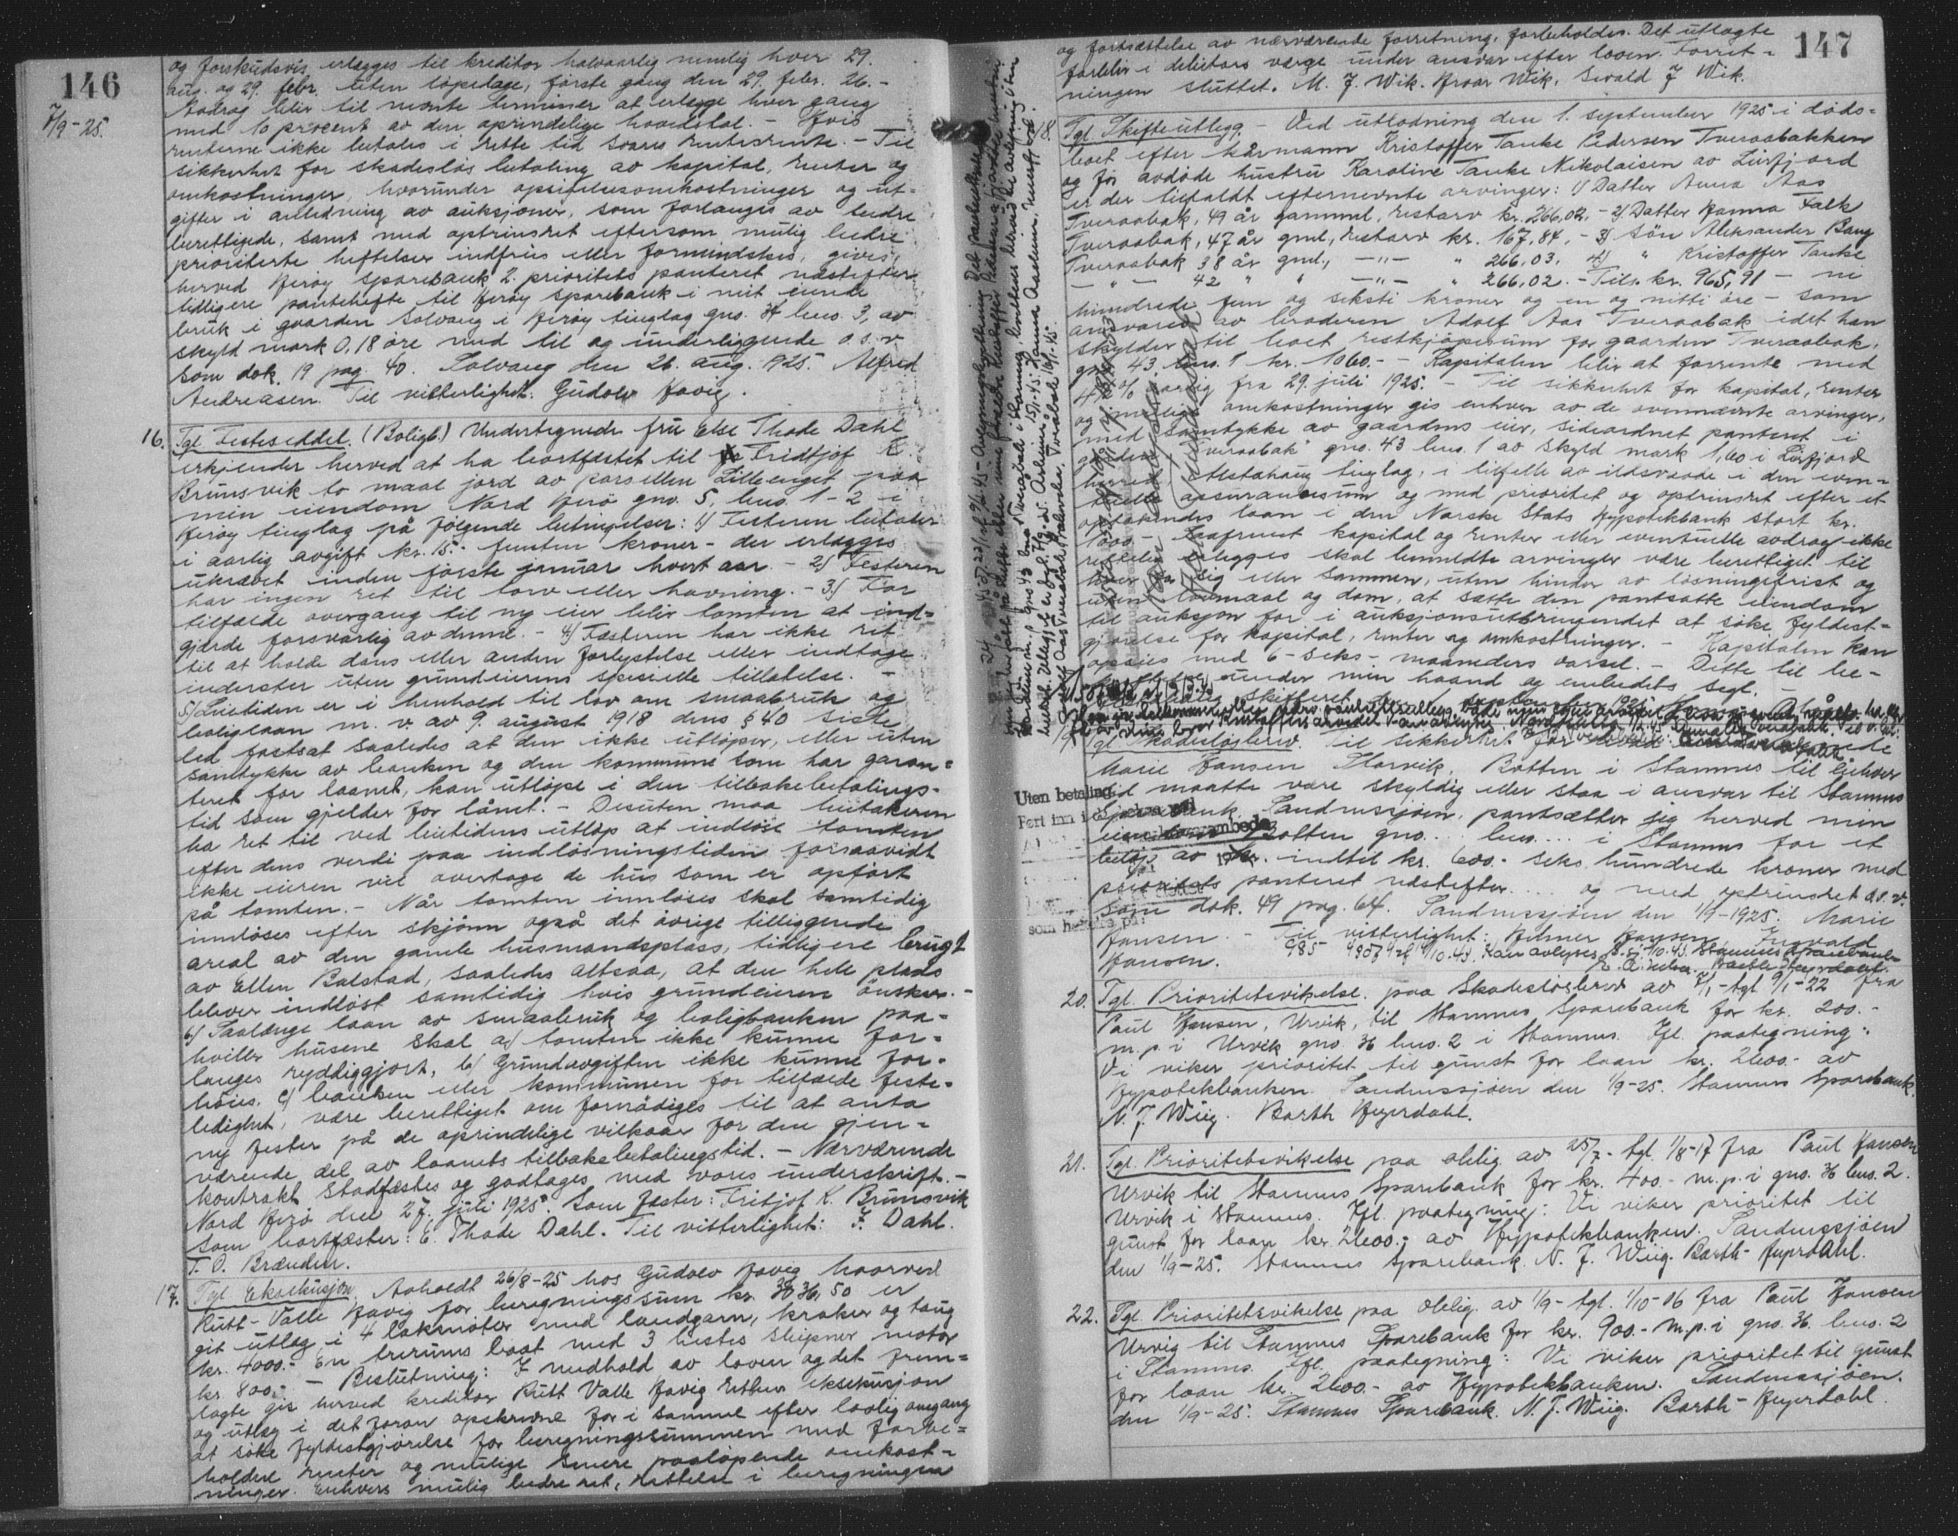 146
7/9-25.
og forskudsvis erlegges til kreditor halvaarlig nemlig hver 29.
aug. og 29. febr. uten løpedage, første gang den 29. febr. 26. -
Avdrag blir til nevnte terminer at erlegge hver gang
med 10 procent av den oprindelige hovedstol. - Hvis
renterne ikke betales i rette tid svares rentesrente. - Til
sikkerhet for skadesløs betaling av kapital, renter og
omkostninger, hvorunder opsigelsesomkostninger og ut-
gifter i anledning av auksjoner, som forlanges av bedre
berettigede, samt med optrinsret eftersom mulig bedre
prioriterte heftelser indfries eller formindskes, gives
herved Herøy Sparebank 2. prioritets panteret næstefter
tidligere pantehefte til Herøy Sparebank i mit eiende
bruk i gaarden Solvang i Herøy tinglag gno. 34 bno. 3, av
skyld mark 0,18 øre med til og underliggende o.s.v.
som dok. 19 pag. 40. Solvang den 26. aug. 1925. Alfred
Andreasen. Til vitterlighet: Gudolv Havig.
16. Tgl. Festeseddel. (Boligb.) Undertegnede fru Else Thode Dahl
erkjender herved at ha bortfæstet til Fridtjof K.
Brunsvik to maal jord av parsellen Lilleenget paa
min eiendom Nord Herø gno. 5, bno. 1-2 i
Herøy tinglag på følgende betingelser: 1) Festeren betaler
i aarlig avgift kr. 15.- femten kroner - der erlægges
ukrævet inden første januar hvert aar. - 2) Festeren
har ingen ret til torv eller havning. - 3) Før
tilfælde overgang til ny eier blir tomten at ind-
gjærde forsvarlig av denne. - 4) Fæsteren har ikke ret
til at holde dans eller anden forlystelse eller indtage
inderster uten grundeierens spesielle tillatelse. -
5) Leietiden er i henhold til lov om smaabruk og
boliglaan m. v. av 9. august 1918 dens § 40 siste
led fastsat saaledes at den ikke utløper, eller uten
samtykke av banken og den kommune som har garan-
teret for laanet, kan utløpe i den tilbakebetalings-
tid som gjelder for lånet. - Desuten maa leietakeren
ha ret til ved leietidens utløp at indløse tomten
efter dens verdi paa indløsningstiden forsaavidt
ikke eieren vil overtage de hus som er opført
på tomten. - Når tomten innløses skal samtidig
innløses efter skjønn også det øvrige tilliggende
areal av den gamle husmandsplass, tidligere brugt
av Ellen Balstad, saaledes altsaa, at den hele plads
blever indløst samtidig hvis grundeieren ønsker. -
6) Saalænge laan av smaabruk og boligbanken paa-
hviler husene skal a) tomten ikke kunne for-
langes ryddiggjort, b) Grundavgiften ikke kunne for-
høies. c) banken eller kommunen for tilfælde feste-
ledighet, være berettiget om fornødiges til at anta
ny fester på de oprindelige vilkaar for den gjen-
værende del av laanets tilbakebetalingstid. - Nærværende
kontrakt stadfæstes og godtages med vores underskrift. -
Nord Herø den 27. juli 1925. Som fester: Fritjof K. Brunsvik
Som bortfæster: E. Thode Dahl. Til vitterlighet: F. Dahl.
T. O. Brænden.
17. Tgl. Eksekusjon. Avholdt 26/8-25 hos Gudolv Havig hvorved
Rutt-Valle Havig for beregningssum kr. 3636,50 er
git utlæg i 4 laksnøter med landgarn, kraker og taug
kr. 4000.- En trerums baat med 3 hestes Sleipner motor
kr. 800.- - Beslutning: I medhold av loven og det frem-
lagte gis herved kreditor Rutt Valle Havig rethen eksekusjon
og utlæg i det foran opskrevne for i samme efter lovlig omgang
at søke fyldestgjørelse for beregningssummen med forbe-
holdene renter og mulige senere paaløpende omkost-
ninger. Enhvers mulig bedre ret, rettelse i beregningen
147
og fortsættelse av nærværende forretning forbeholdes. Det utlagte
forblir i debitors værge under ansvar efter loven. Forret-
ningen sluttet. M. J. Wik. Hroar Wik. Sevald J Wik.
18. Tgl. Skifteutlegg. - Ved utlodning den 1. september 1925 i døds-
boet efter kårmann Kristoffer Tanke Pedersen Tveraabakken
og før avdøde hustru Karoline Tanke Nikolaisen av Leirfjord
er der tilfaldt efternevnte arvinger: 1) Datter Anna Aas
Tveraabak, 49 år gammel, restarv kr. 266,02. - 2) Datter Hanna Falk
Tveraabak, 47 år gml, restarv kr. 167,84. - 3) Søn Aleksander Bang
Tveraabak 38 år gml, -"- " 266,03. 4) " Kristoffer Tanke
-"- 42 " " -"- " 266,02. - Tils. kr. 965,91 - ni
hundrede fem og seksti kroner og en og nitti øre - som
ansvares av broderen Adolf Aas Tveraabak idet han
skylder til boet restkjøpesum for gaarden Tveraabak,
gno. 43 bno. 1 kr. 1060.- - Kapitalen blir at forrente med
4 % aarlig fra 29. juli 1925. - Til sikkerhet for kapital, renter
og mulige omkostninger gis enhver av de ovennævnte arvinger,
med samtykke av gaardens eier, sideordnet panteret i
gaarden Tveraabak gno. 43 bno. 1 av skyld mark 1,60 i Leirfjord
herred, Alstahaug tinglag, i tilfælle av ildsvaade i den even-
tuelle assurancesum og med prioritet og optrinsret efter et
optakendes laan i den Norske Stats Hypotekbank stort kr.
1200.- Saafremt kapital og renter eller eventuelle avdrag ikke
rettelig erlegges skal bemeldte arvinger være berettiget til
hver for sig eller sammen, uten hinder av løsningsfrist og
uten lovmaal og dom, at sætte den pantsatte eiendom
til auksjon for i auksjonsutbringendet at søke fyldest-
gjørelse for kapital, renter og omkostninger. - Kapitalen kan
opsies med 6 - seks - maaneders varsel. - Dette til be-
kræftelse under min haand og embedets segl. -
Tgl. Skadesløsbrev. Til sikkerhet for
Marie Hansen Storvik, Botten i Stamnes til enhver
tid maatte være skyldig eller staa i ansvar til Stamnes
Sparebank, Sandnessjøen, pantsætter jeg herved min
eiendom Botten gno. .... bno. .... i Stamnes for et
beløp av kr. indtil kr. 600.- seks hundrede kroner med
prioritets panteret næstefter .... og med optrinsret o.s.v.
som dok. 49 pag. 64. Sandnessjøen den 1/9-1925. Marie
Hansen - Til vitterlighet: Helmer Hansen, Ingvald
Hansen.
Uten betaling
20. Tgl. Prioritetsvikelse paa Skadesløsbrev av 7/1-tgl 9/1-22 fra
Paul Hansen, Urvik, til Stamnes Sparebank for kr. 200.-
m.p. i Urvik gno. 36 bno. 2 i Stamnes. Hfl. paategning:
Vi viker prioritet til gunst for laan kr. 2600.- av
Hypotekbanken. Sandnessjøen den 1/9-25. Stamnes Sparebank.
N. J. Wiig. Barth Heyerdahl.
21. Tgl. Prioritetsvikelse paa oblig. av 25/7-tgl. 1/8-17 fra Paul Hansen
Urvik til Stamnes Sparebank for kr. 400.- m.p. i gno. 36 bno. 2.
Urvik i Stamnes. Hfl. paategning: Vi viker prioritet til
gunst for laan kr. 2600.- av Hypotekbanken. Sandnessjøen
den 1/9-25. Stamnes Sparebank. N. J. Wiig. Barth-Heyerdahl.
22. Tgl. Prioritetsvikelse paa oblig. av 1/9-tgl. 1/10-06 fra Paul Hansen
Urvig til Stamnes Sparebank for kr. 900.- m.p. i gno. 36 bno. 2
i Stamnes. Hfl. paategning: Vi viker prioritet til gunst
for laan kr. 2600.- av Hypotekbanken. Sandnessjøen.
den 1/9-25. Stamnes Sparebank. N. J. Wiig. Barth-Heyerdahl.